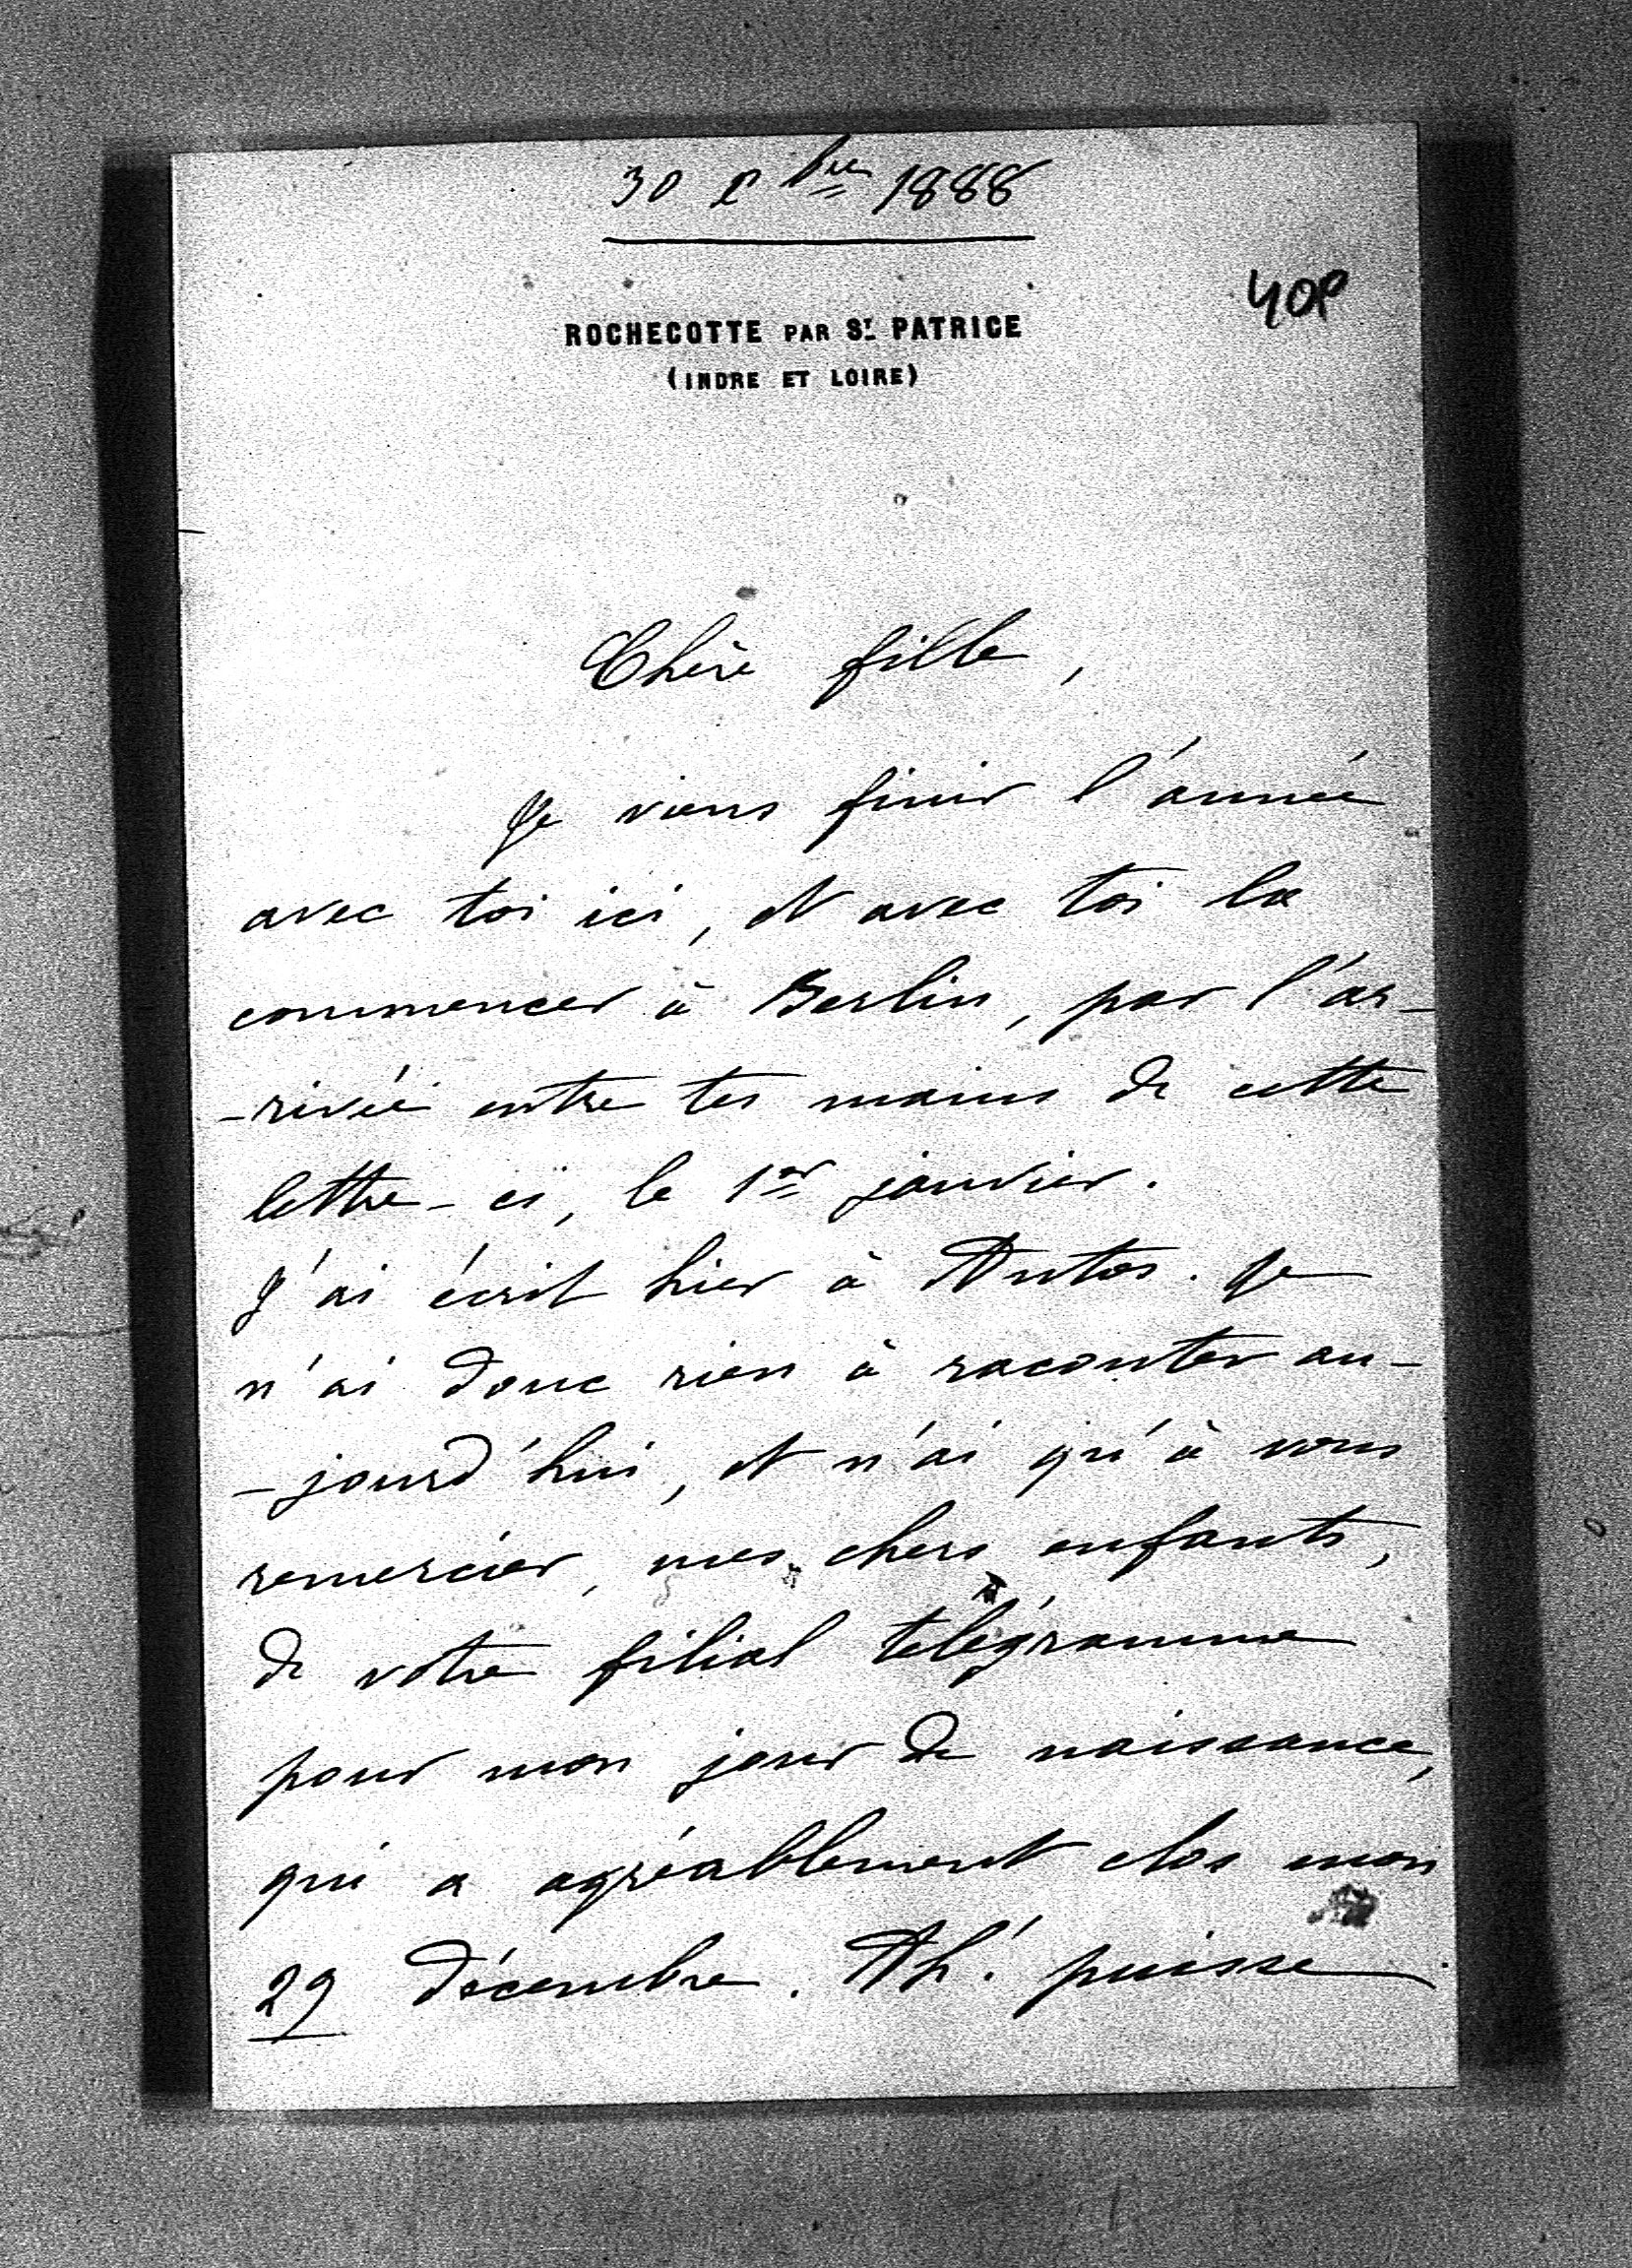 30 Xbre 1888
40P
ROCHECOTTE PAR ST PATRICE
(INDRE ET LOIRE)
Chère fille,
Je viens finir l'année
avec toi ici, et avec toi la
commencer à Berlin, par l'ar-
-rivée entre tes mains de cette
lettre-ci, le 1er janvier.
J'ai écrit hier à Antos. Je
n'ai donc rien à raconter au-
-jourd'hui, et n'ai qu'à vous
remercier, mes chers enfants,
de votre filial télégramme
pour mon jour de naissance,
qui a agréablement clos mon
29 décembre. Ah! puisse